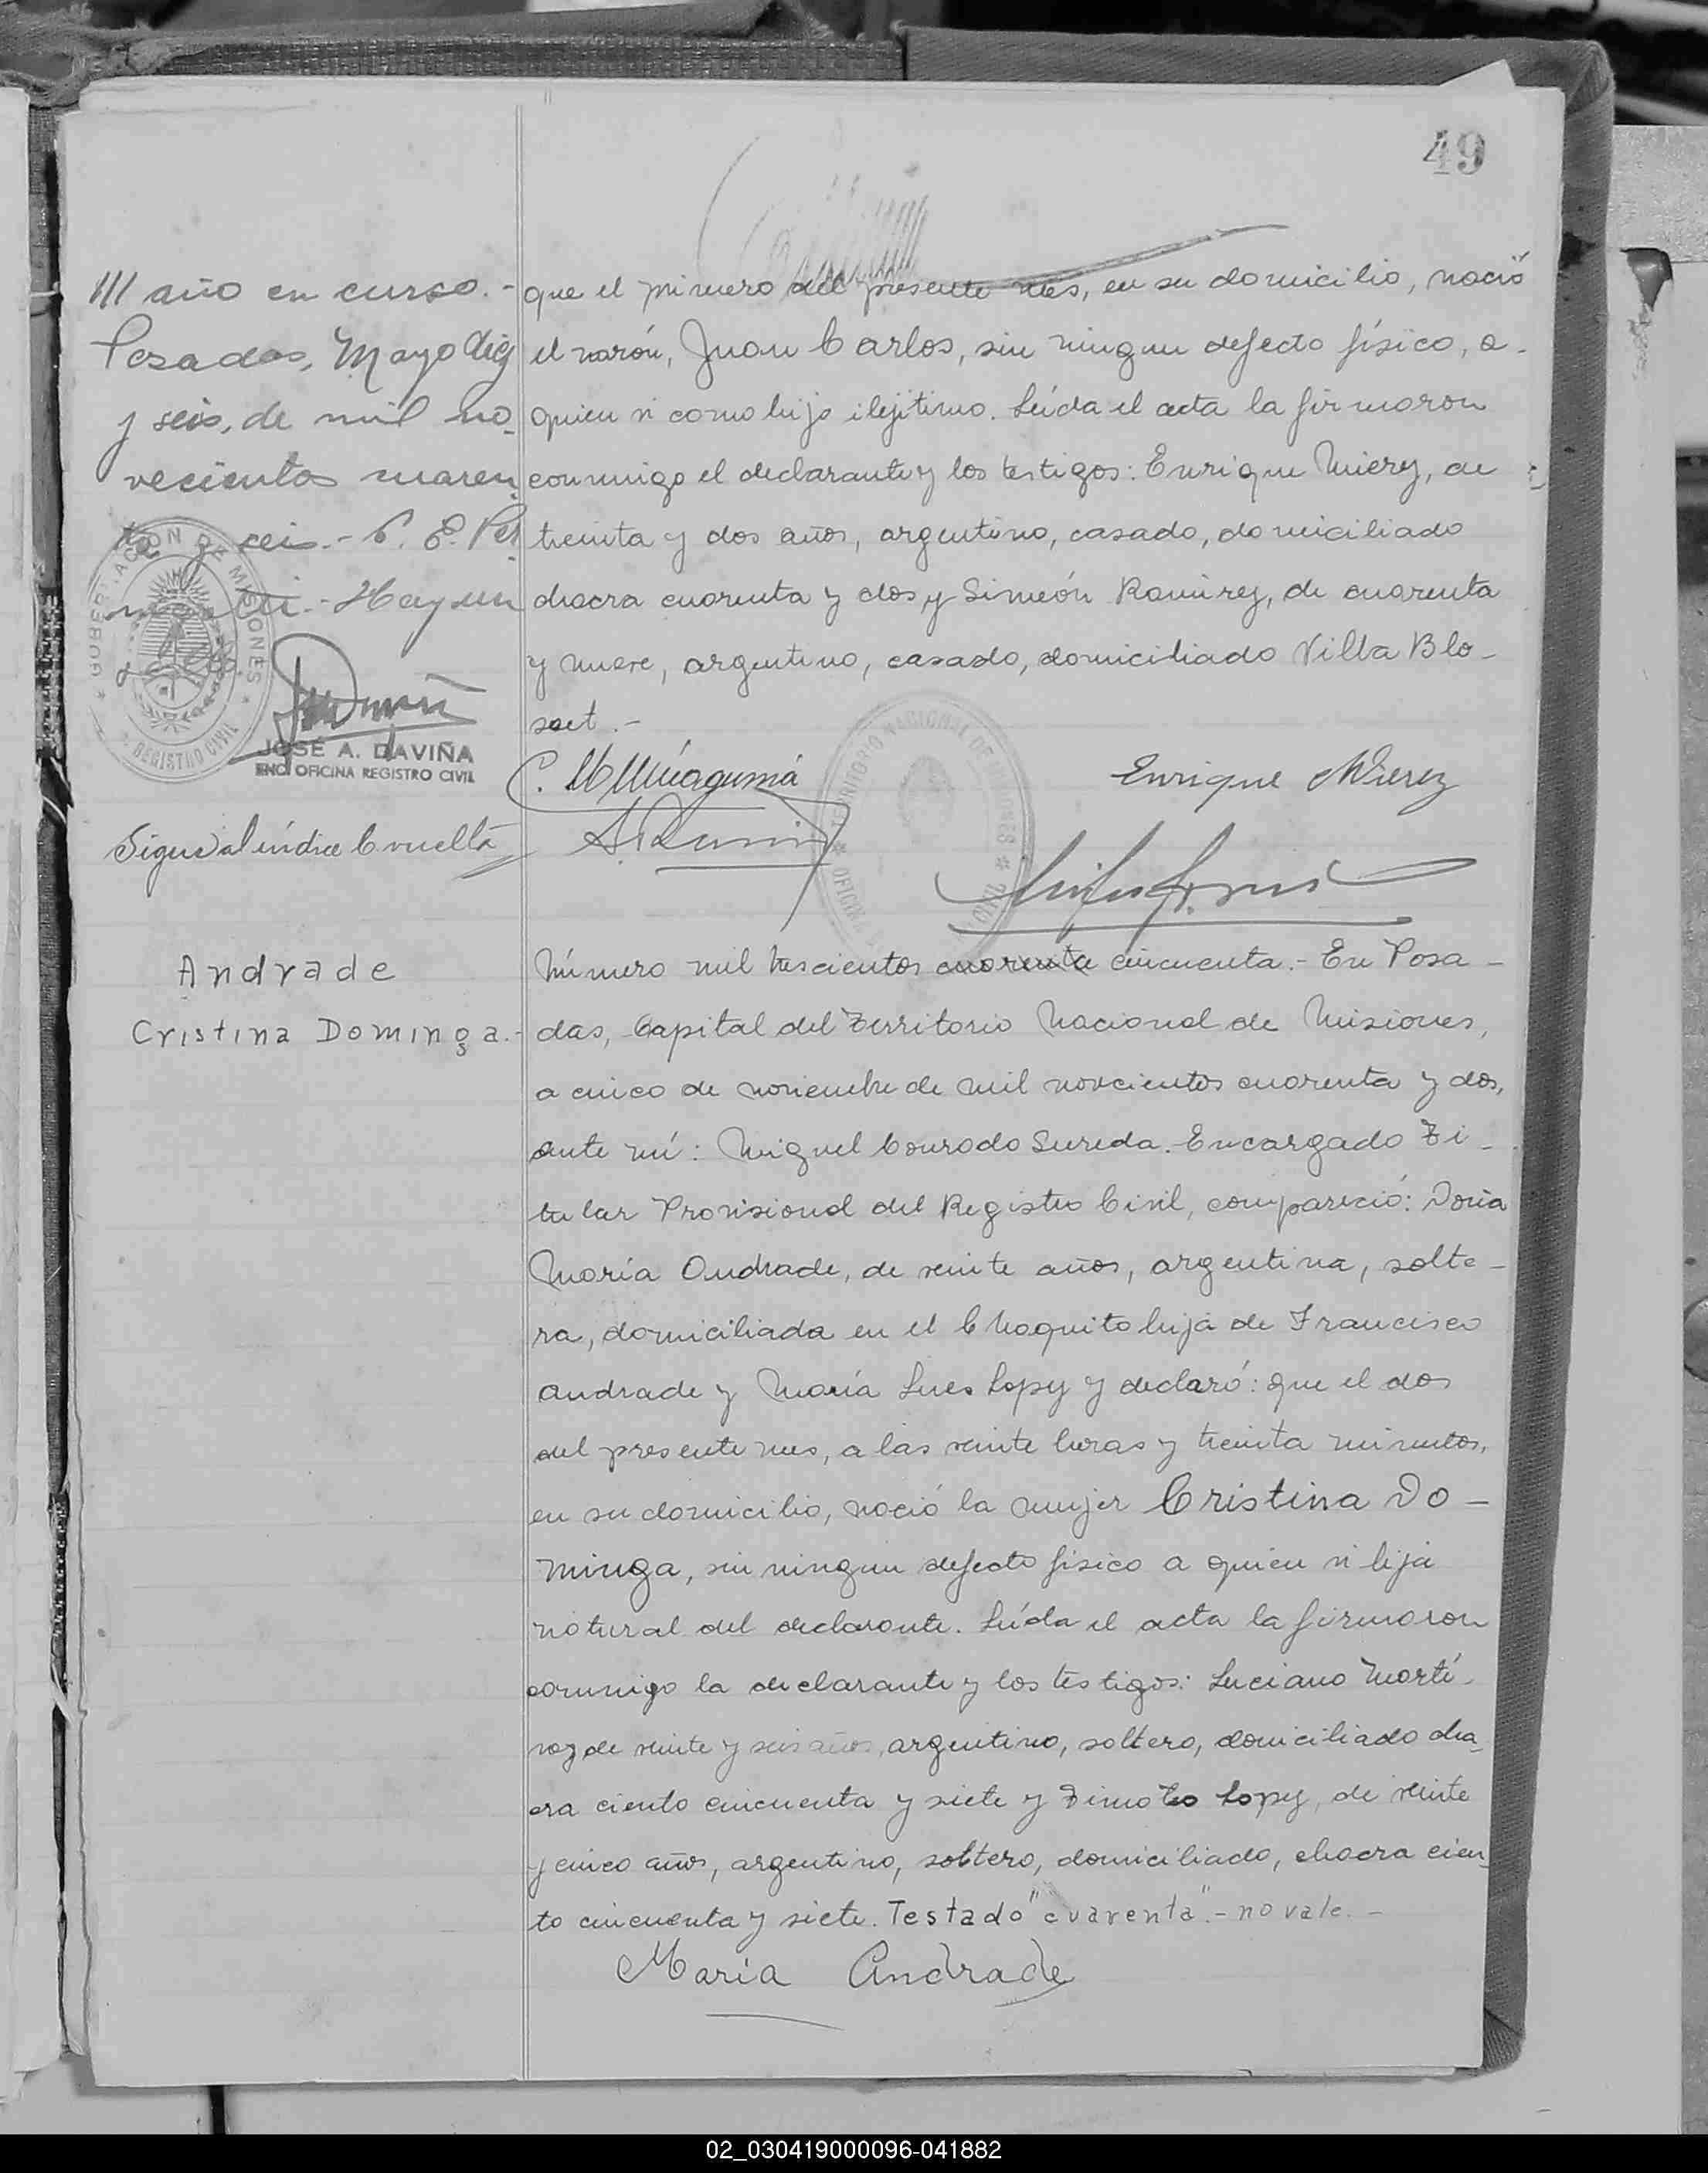 49
III año en curso.-
Posadas, Mayo diez
y seis, de mil no-
vecientos cuaren-
ta y seis.-
Hay un
sello.
GOBERNACION DE MISIONES
REGISTRO CIVIL
JOSÉ A. DAVIÑA
ENC. OFICINA REGISTRO CIVIL
Sigue al índice vuelta
que el primero del presente mes, en su domicilio, nació
el varón, Juan Carlos, sin ningun defecto físico, a-
quien vi como hijo ilejitimo. Leída el acta la firmaron
conmigo el declarante y los testigos: Enrique Mierez, de
treinta y dos años, argentino, casado, domiciliado
chacra cuarenta y dos y Simeón Ramirez, de cuarenta
y nueve, argentino, casado, domiciliado Villa Blo-
set.-
Enrique Mierez
TERRITORIO NACIONAL DE MISIONES
OFICINA
Andrade
Cristina Dominga.-
Número mil trescientos cuarenta cincuenta.- En Posa-
das, Capital del Territorio Nacional de Misiones,
a cinco de noviembre de mil novecientos cuarenta y dos,
ante mí: Miguel Conrado Sureda. Encargado Ti-
tular Provisional del Registro Civil, compareció: Doña
María Andrade, de veinte años, argentina, solte-
ra, domiciliada en el Chaquito hija de Francisco
Andrade y María Lopez y declaró: que el dos
del presente mes, a las veinte horas y treinta minutos,
en su domicilio, nació la mujer Cristina Do-
minga, sin ningun defecto físico a quien vi hija
natural del declarante. Leída el acta la firmaron
conmigo la declarante y los testigos: Luciano Martí-
nez de veinte y seis años, argentino, soltero, domiciliado cha-
cra ciento cincuenta y siete y Timoteo Lopez, de veinte
y cinco años, argentino, soltero, domiciliado, chacra cien-
to cincuenta y siete. Testado "cuarenta".- no vale.-
María Andrade
02_030419000096-041882